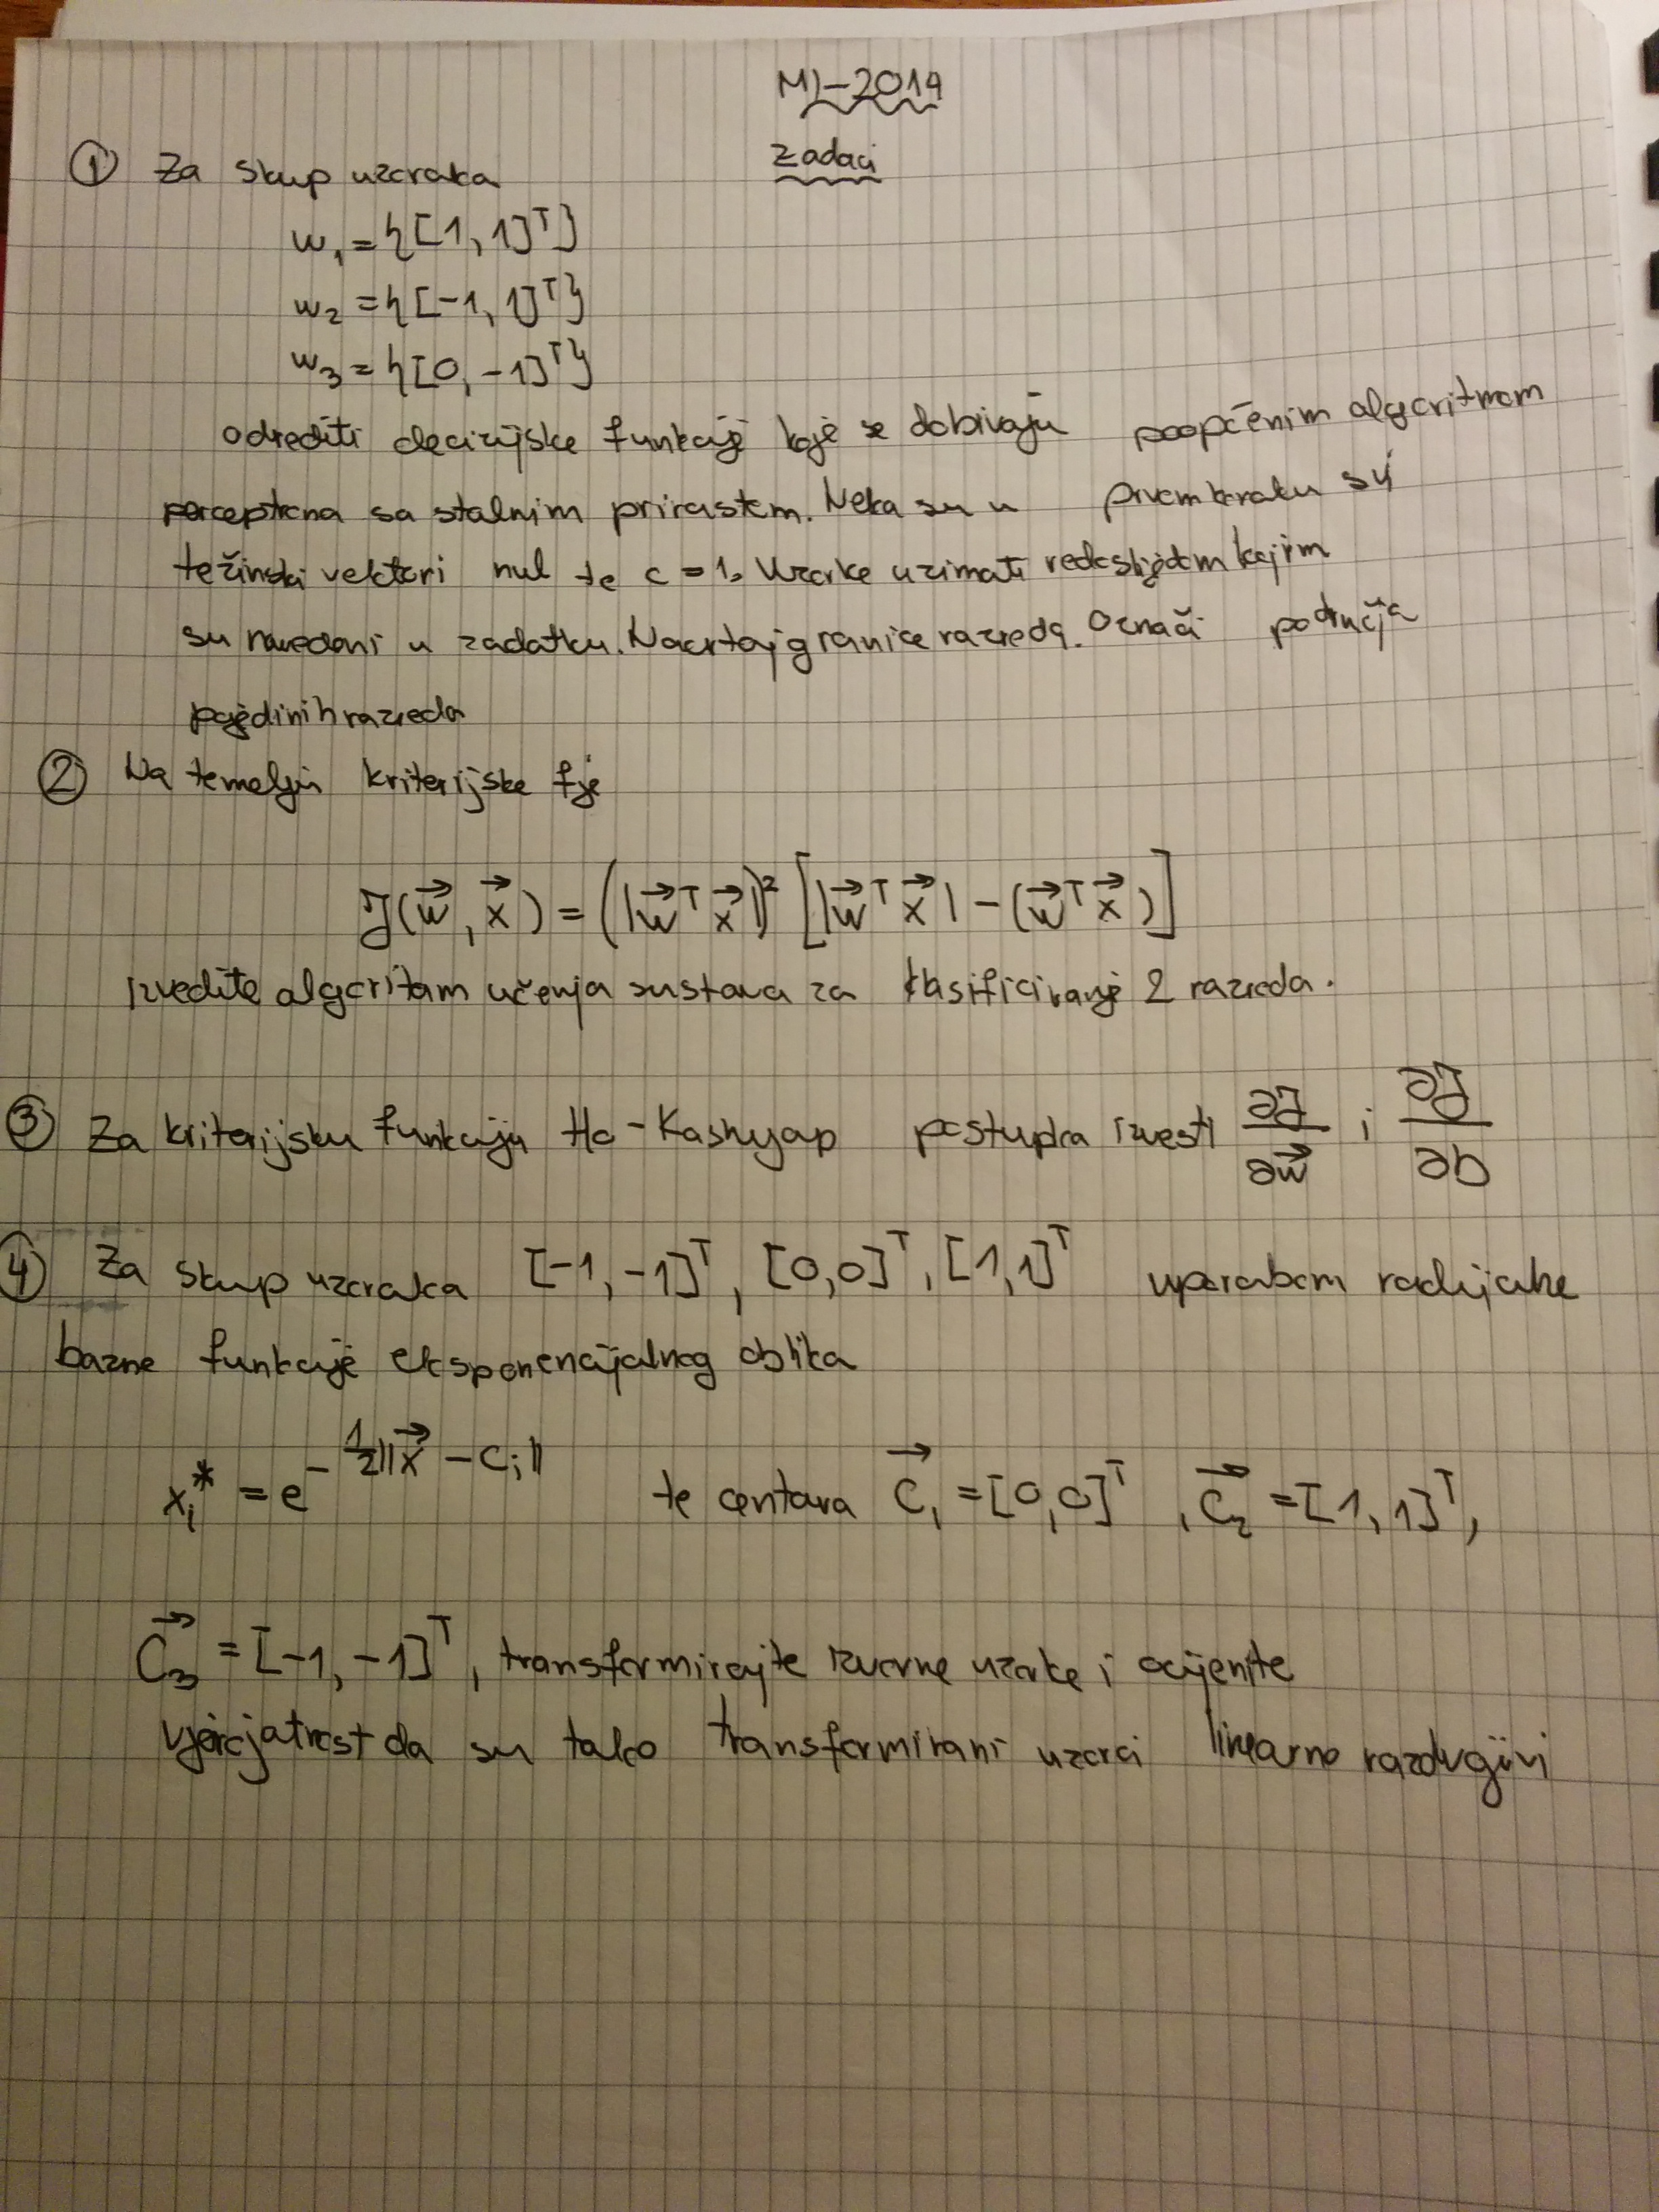 MI-2014
zadaci
① Za skup uzoraka
w₁ = {[1, 1]ᵀ}
w₂ = {[-1, 1]ᵀ}
w₃ = {[0, -1]ᵀ}
odrediti decizijske funkcije koje se dobivaju poopćenim algoritmom
perceptrona sa stalnim prirastom. Neka su u prvom koraku svi
težinski vektori nul te c = 1. Uzorke uzimati redoslijedom kojim
su navedeni u zadatku. Nacrtaj granice razreda. Označi područja
pojedinih razreda
② Na temelju kriterijske fje
J(w⃗, x⃗) = (|w⃗ᵀ x⃗|)² [|w⃗ᵀ x⃗| - (w⃗ᵀ x⃗)]
izvedite algoritam učenja sustava za klasificiranje 2 razreda.
③ Za kriterijsku funkciju Ho-Kashyap postupka izvesti ∂J/∂w⃗ i ∂J/∂b
④ Za skup uzoraka [-1, -1]ᵀ, [0,0]ᵀ, [1,1]ᵀ uporabom radijalne
bazne funkcije eksponencijalnog oblika
xᵢ* = e^(-½||x⃗ - cᵢ||) te centara c⃗₁ = [0,0]ᵀ, c⃗₂ = [1,1]ᵀ,
c⃗₃ = [-1, -1]ᵀ, transformirajte izvorne uzorke i ocijenite
vjerojatnost da su tako transformirani uzorci linearno razdvojivi